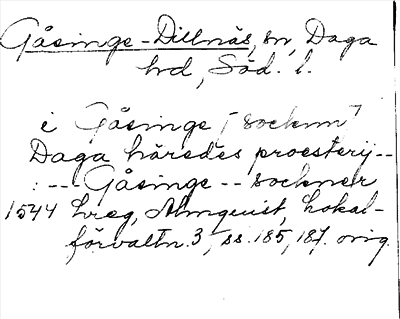 Gåsinge-Dillnäs, sn, Daga
hd, Söd. l.
i Gåsinge [socknn]
Daga häredes proesterij--
:--- Gåsinge -- sockner
1544 hreg, Almquist, Lokal-
förvaltn. 3, ss. 185, 187. orig.